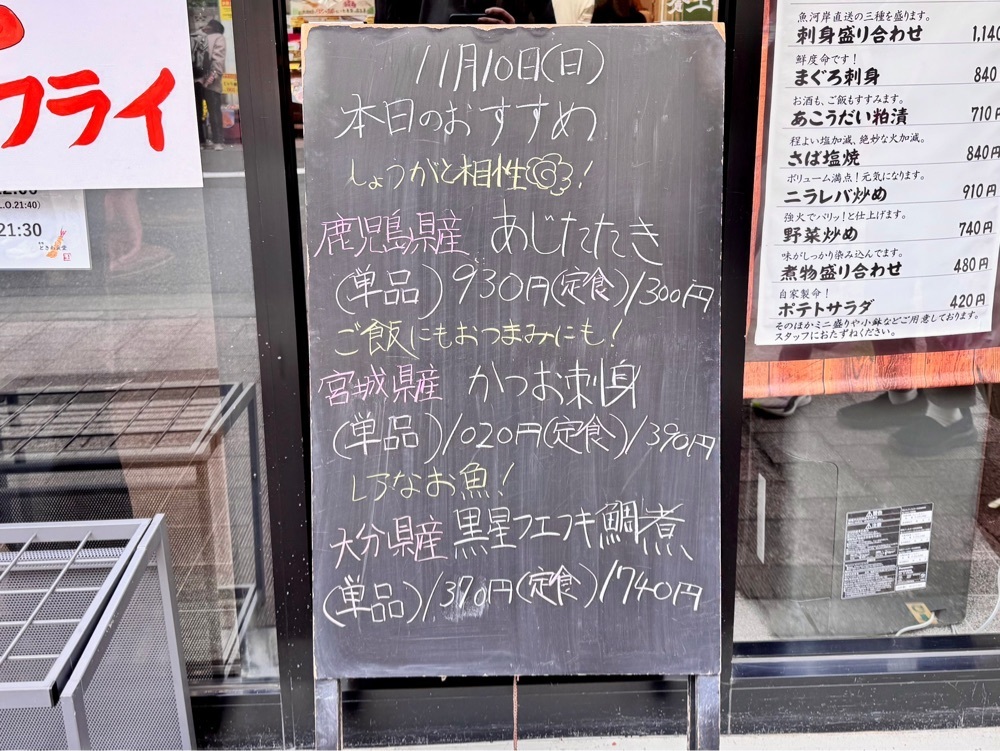 フライ
(L.O.21:40)
21:30
11月10日(日)
本日のおすすめ
しょうがと相性◎!
鹿児島県産 あじたたき
(単品)930円(定食)1300円
ご飯にもおつまみにも!
宮城県産 かつお刺身
(単品)1020円(定食)1390円
レアなお魚!
大分県産 黒星フエフキ鯛煮
(単品)1370円(定食)1740円
魚河岸直送の三種を盛ります。
刺身盛り合わせ 1,140
鮮度命です!
まぐろ刺身 840
お酒も、ご飯もすすみます。
あこうだい粕漬 710円
程よい塩加減、絶妙な火加減。
さば塩焼 840円
ボリューム満点!元気になります。
ニラレバ炒め 910円
強火でパリッ!と仕上げます。
野菜炒め 740円
味がしっかり染み込んでます。
煮物盛り合わせ 480円
自家製命!
ポテトサラダ 420円
そのほかミニ盛りや小鉢などご用意しております。
スタッフにおたずねください。